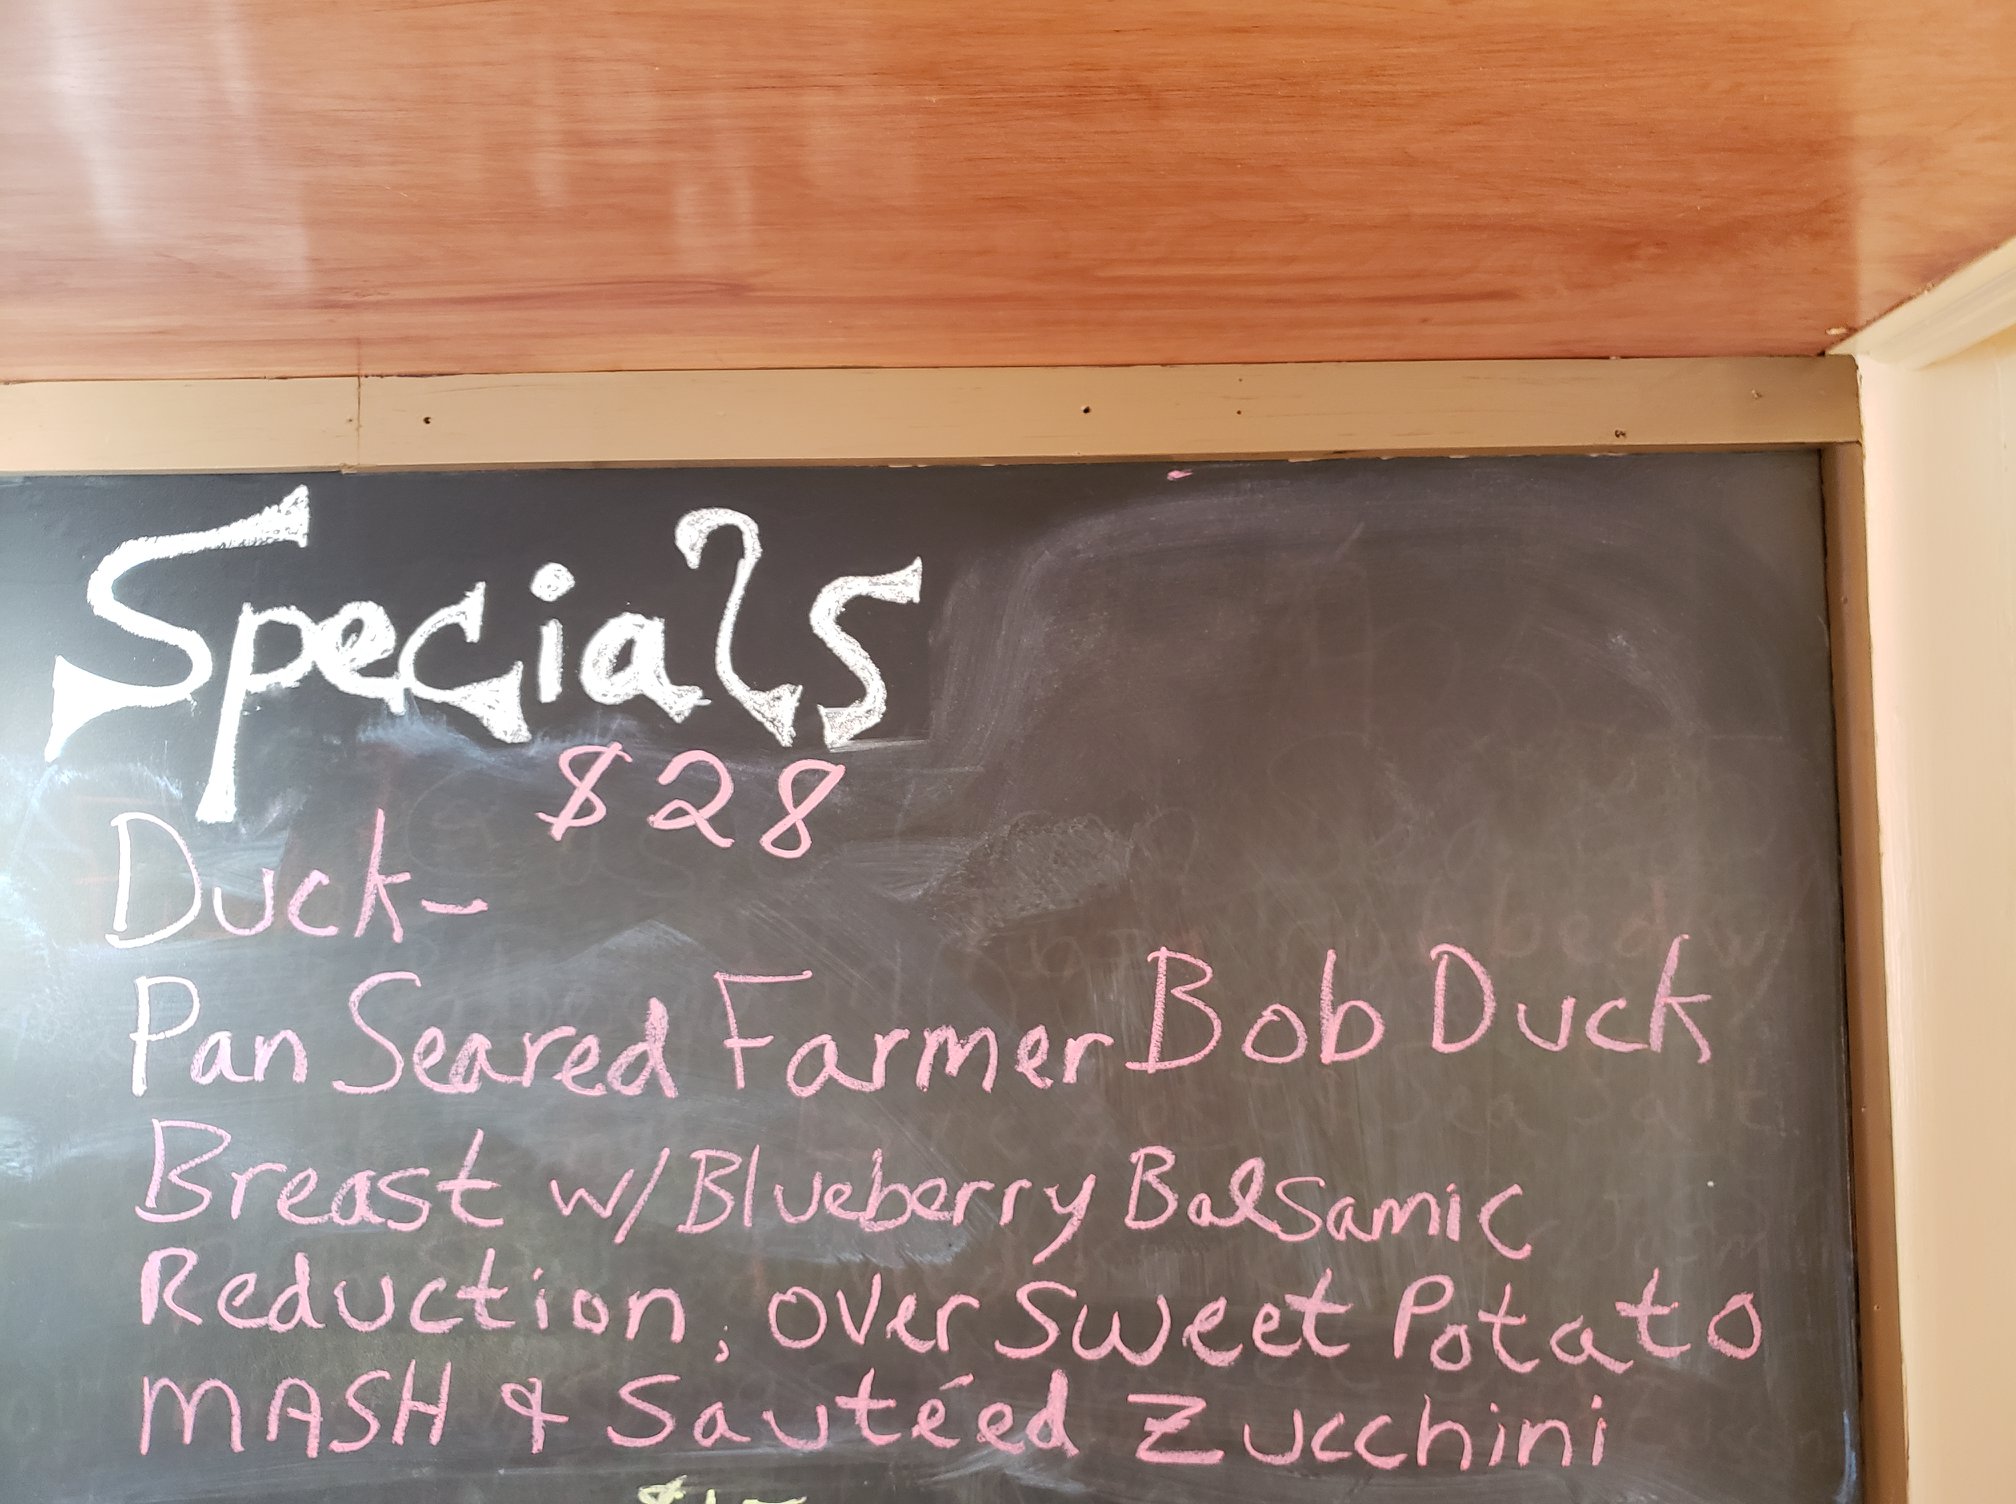 Specials
$28
Duck-
Pan Seared Farmer Bob Duck
Breast w/ Blueberry Balsamic
Reduction, over Sweet Potato
MASH & Sautéed Zucchini